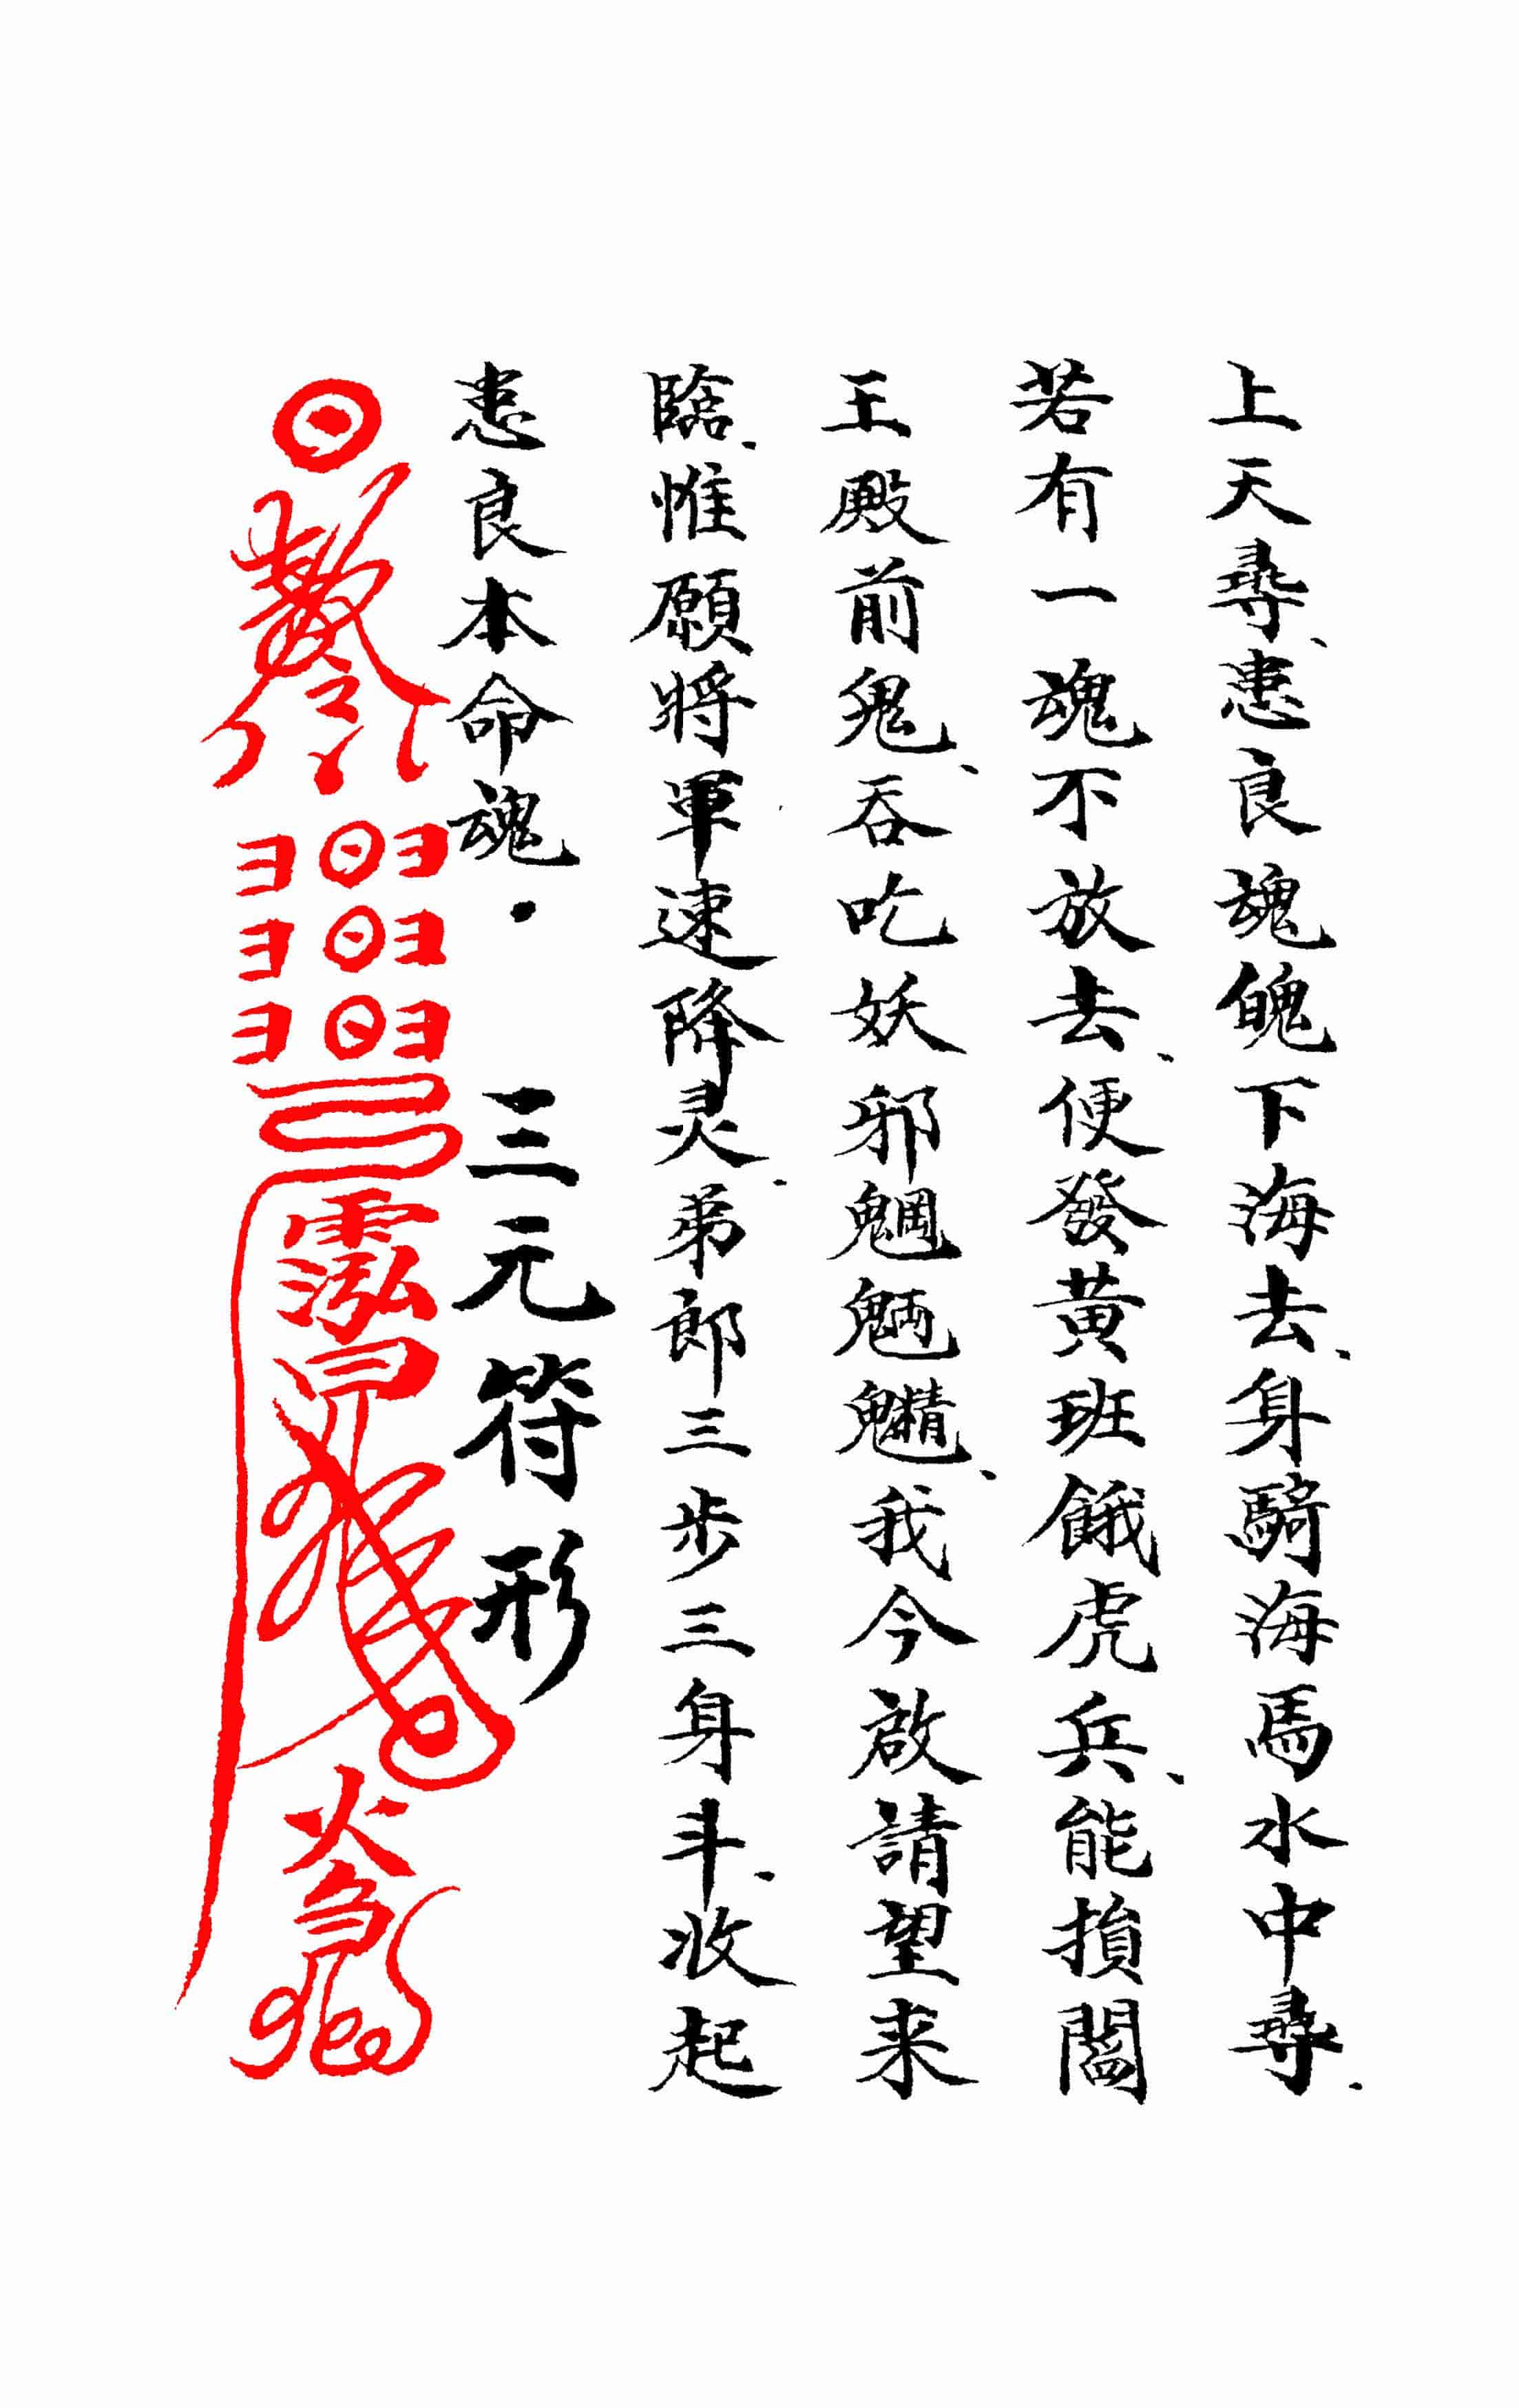 上天尋、患良魂魄下海去、身騎海馬水中尋、
若有一魂不放去、便發黃班餓虎兵、能損閣
王殿前鬼、吞吃妖邪魍魎魑、我今啟請望来
臨、惟願將軍速降灵、弟郎三步三身斗、收起
患良本命魂. 三元符形